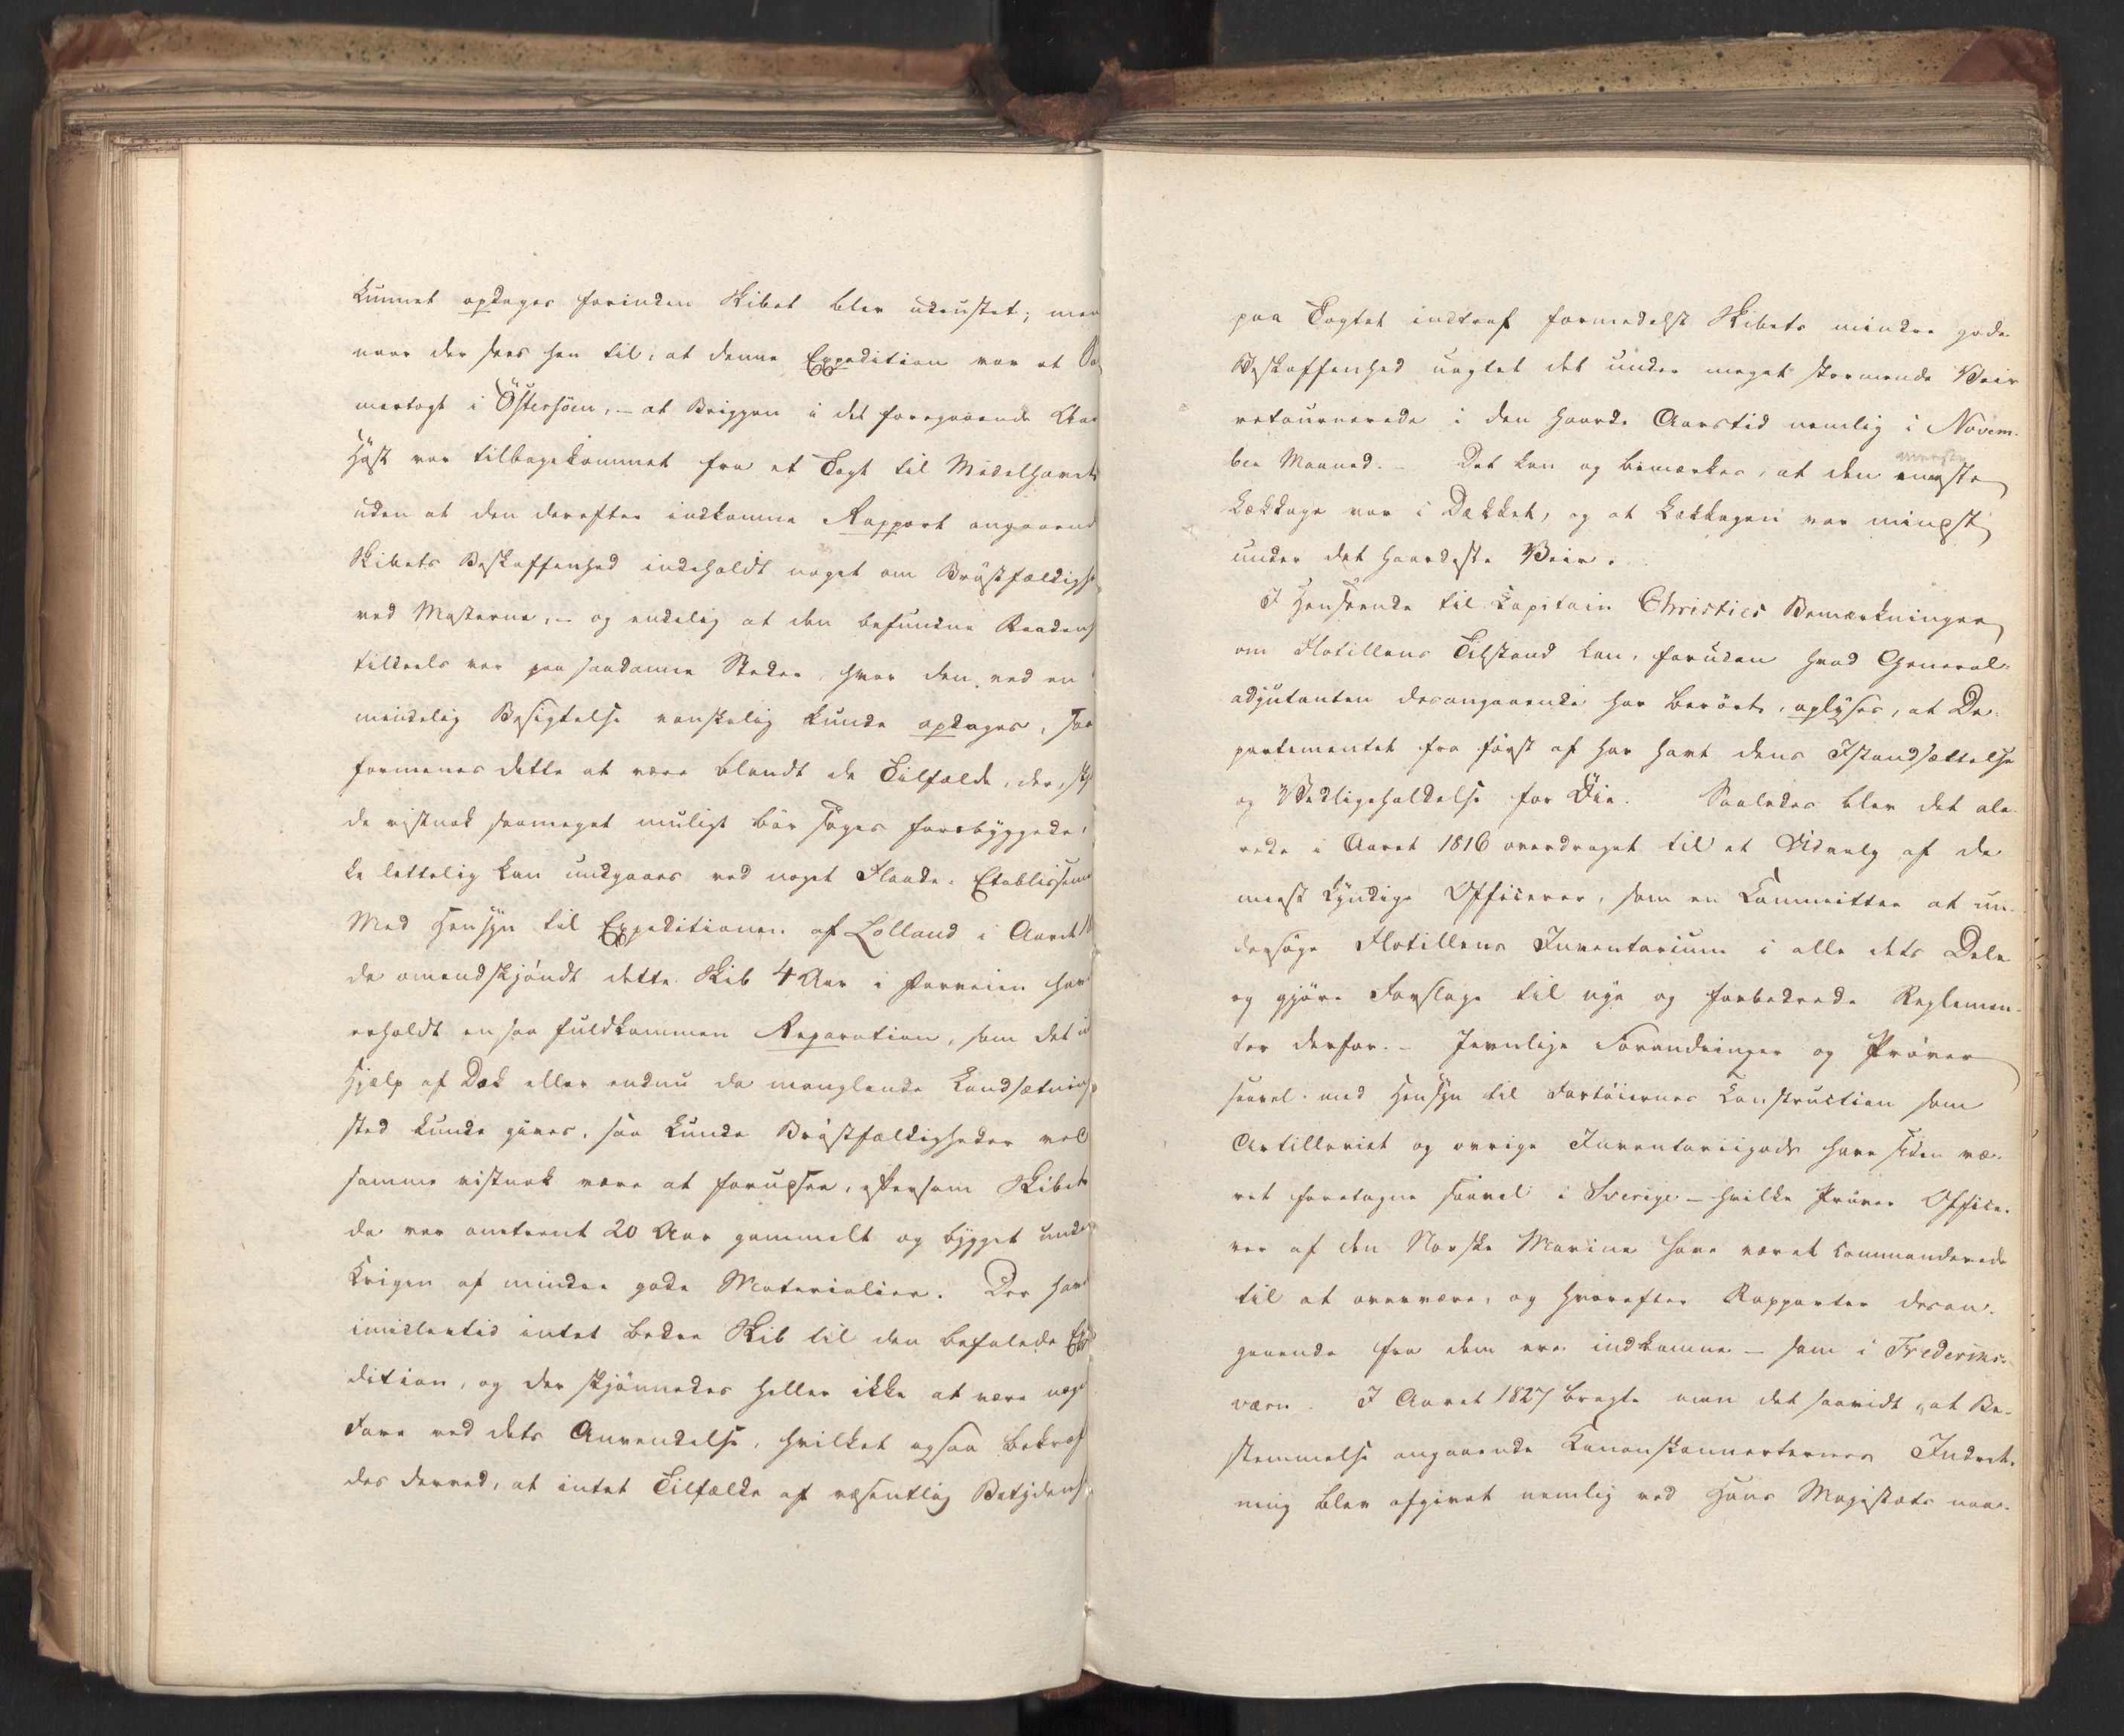 kunnet opdages forinden Skibet blev udrustet; men
naar der sees hen til, at denne Expedition var et So
mertogt i Östersöen, – at Briggen i det foregaaende Aar
Höst var tilbagekommet fra et Togt til Middelhavet
uden at den derefter indkomne Rapport angaaend
Skibets Beskaffenhed indeholdt noget om Bröstfældigh
ved Masterne, – og endelig at den befundne Raadenh
tildeels var paa saadanne Steder, hvor den ved en
mindelig Besigtelse vanskelig kunde opdages, saa
formenes dette at være blandt de Tilfælde, der, sk
de vistnok saameget muligt bör söges forebyggede,
ke lettelig kan undgaaes ved noget Flaade-Etablissem
Med Hensyn til Expeditionen af Lolland i Aaret 18
da omendskjöndt dette Skib 4 Aar i Forveien hav
erholdt en saa fuldkommen Reparation, som det u
Hjælp af Dok eller endnu de manglende Landsætnings
sted kunde gives, saa kunde Bröstfældigheder ved
samme vistnok være at forudsee, eftersom Skibet
da var omtrent 20 Aar gammelt og bygget unde
Krigen af mindre gode Materialier. Der hav
imidlertid intet bedre Skib til den befalede Exp
dition, og der skjönnedes heller ikke at være noge
Fare ved dets Anvendelse, hvilket ogsaa bekræf
des derved, at intet Tilfælde af væsentlig Betydenh
paa Togtet indtraf formedelst Skibets mindre gode
Beskaffenhed uagtet det under meget stormende Veir
retournerede i den haarde Aarstid nemlig i Novem-
ber Maaned. – Det kan og bemærkes, at den meeste
Lækkage var i Dækket, og at Lækkagen var mindst
under det haardeste Veir.
I Henseende til Capitain Christies Bemærkninger
om Flotillens Tilstand kan, foruden hvad General-
adjutanten desangaaende har berört, oplyses, at De-
partementet fra först af har havt dens Istandsættelse
og Vedligeholdelse for Öie. Saaledes blev det alle-
rede i Aaret 1816 overdraget til et Udvalg af de
meest kyndige Officerer, som en Committee at un-
dersöge Flotillens Inventarium i alle dets Dele
og gjöre Forslage til nye og forbedrede Reglemen-
ter derfor. – Jevnlige Forandringer og Pröver
saavel med Hensyn til Fartöiernes Construction som
Artilleriet og övrige Inventariigods have siden væ-
ret foretagne saavel i Sverige – hvilke Pröver Office-
rer af den Norske Marine have været commanderede
til at overvære, og hvorefter Rapporter desan-
gaaende fra dem ere indkomne – som i Frederiks-
værn. I Aaret 1827 bragte man det saavidt, at Be-
stemmelse angaaende Kanonskonnerternes Indret-
ning blev afgivet nemlig ved Hans Majestæts naa-